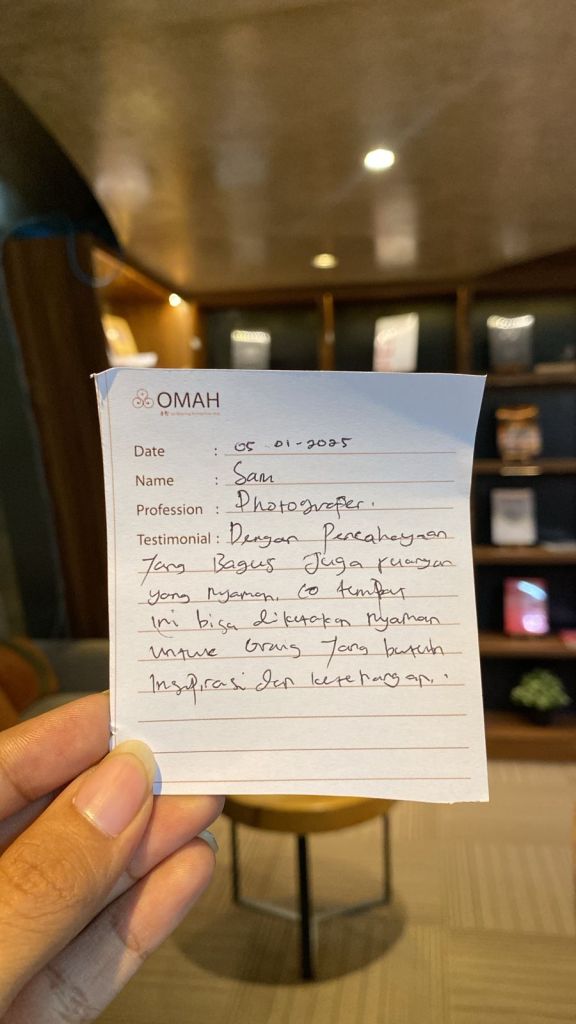 OMAH
Date : 05-01-2025
Name : Sam
Profession : Photografer.
Testimonial : Dengan Pencahayaan
Yang Bagus Juga ruangan
yang nyaman, tempat
ini bisa dikatakan nyaman
untuk Orang Yang butuh
Inspirasi dan ketenangan..